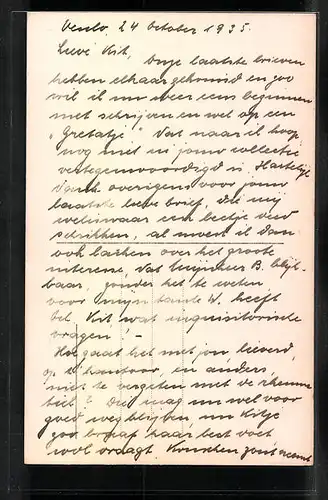 Venlo, 24 October 1935.
Lieve Kit, Onze laatste brieven
hebben elkaar gekruisd en zoo
wil ik nu weer eens beginnen
met schrijven en wel op een
"Gretatje" dat naar ik hoop
nog niet in jouw collectie
vertegenwoordigd is. Hartelijk
dank overigens voor jouw
laatste lieve brief, die mij
weliswaar een beetje deed
schrikken, al moest ik dan
ook lachen over het groote
interesse, dat mijnheer B. blijk-
baar, zonder het te weten
voor mijn tante W. heeft
Kit wat inquisitorische
vragen! -
Hoe gaat het met jou lieverd,
op 't kantoor, en anders,
niet te vergeten met de rheuma-
tiek? Die mag nu wel voor
goed weg blijven nu Kitje
zoo braaf haar best doet